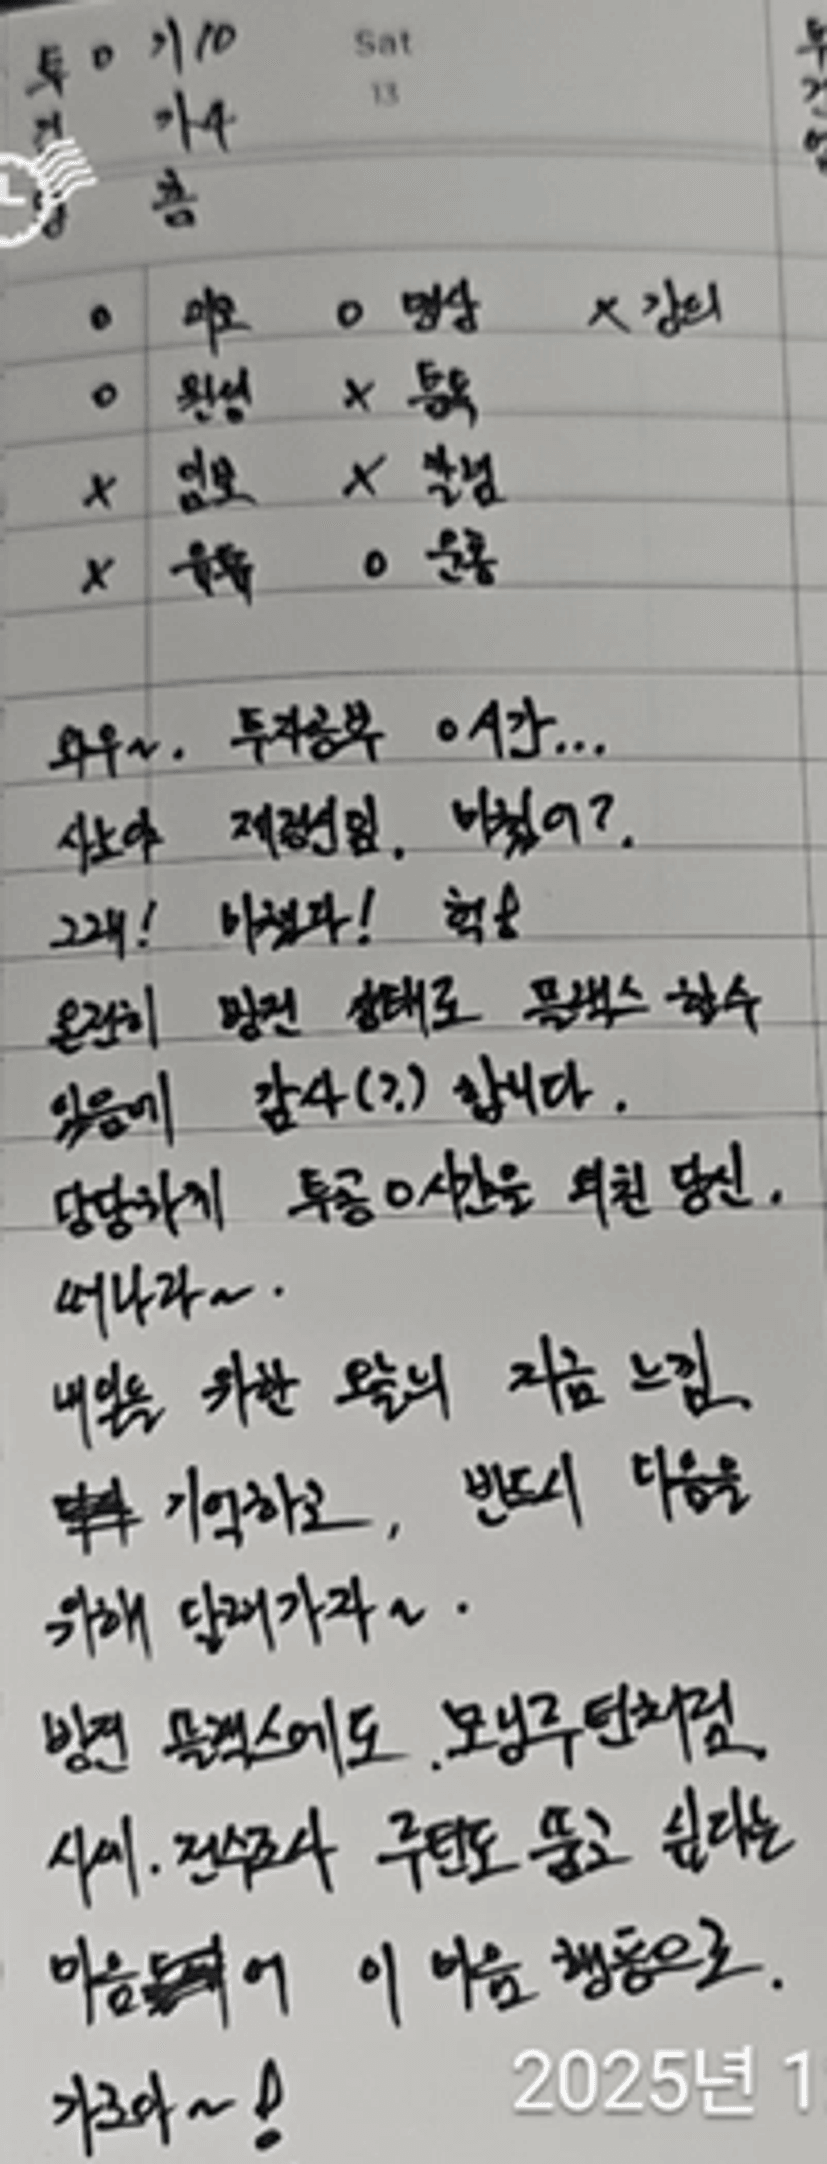 투 0 기10
Sat
13
건 가4
영 흠
투
건
영
0 미모 0 명상 x 강의
0 원씽 x 등록
x 임보 x 말념
x 육독 0 운동
와우~. 투자공부 0시간...
시노야 제정신임. 미쳤어?.
그래! 미쳤다! 헉ㅎ
온전히 방전 상태로 플렉스 할수
있음에 감사(?.) 합니다.
당당하게 투공 0시간을 외친 당신.
떠나라~.
내일을 위한 오늘의 지금 느낌
기억하고, 반드시 다음을
위해 달래가자~.
방전 플렉스에도 모닝루틴처럼
시세. 전수조사 루틴도 뚫고 싶다는
마음 어 이 마음 행동으로.
가즈아~!
2025년 1